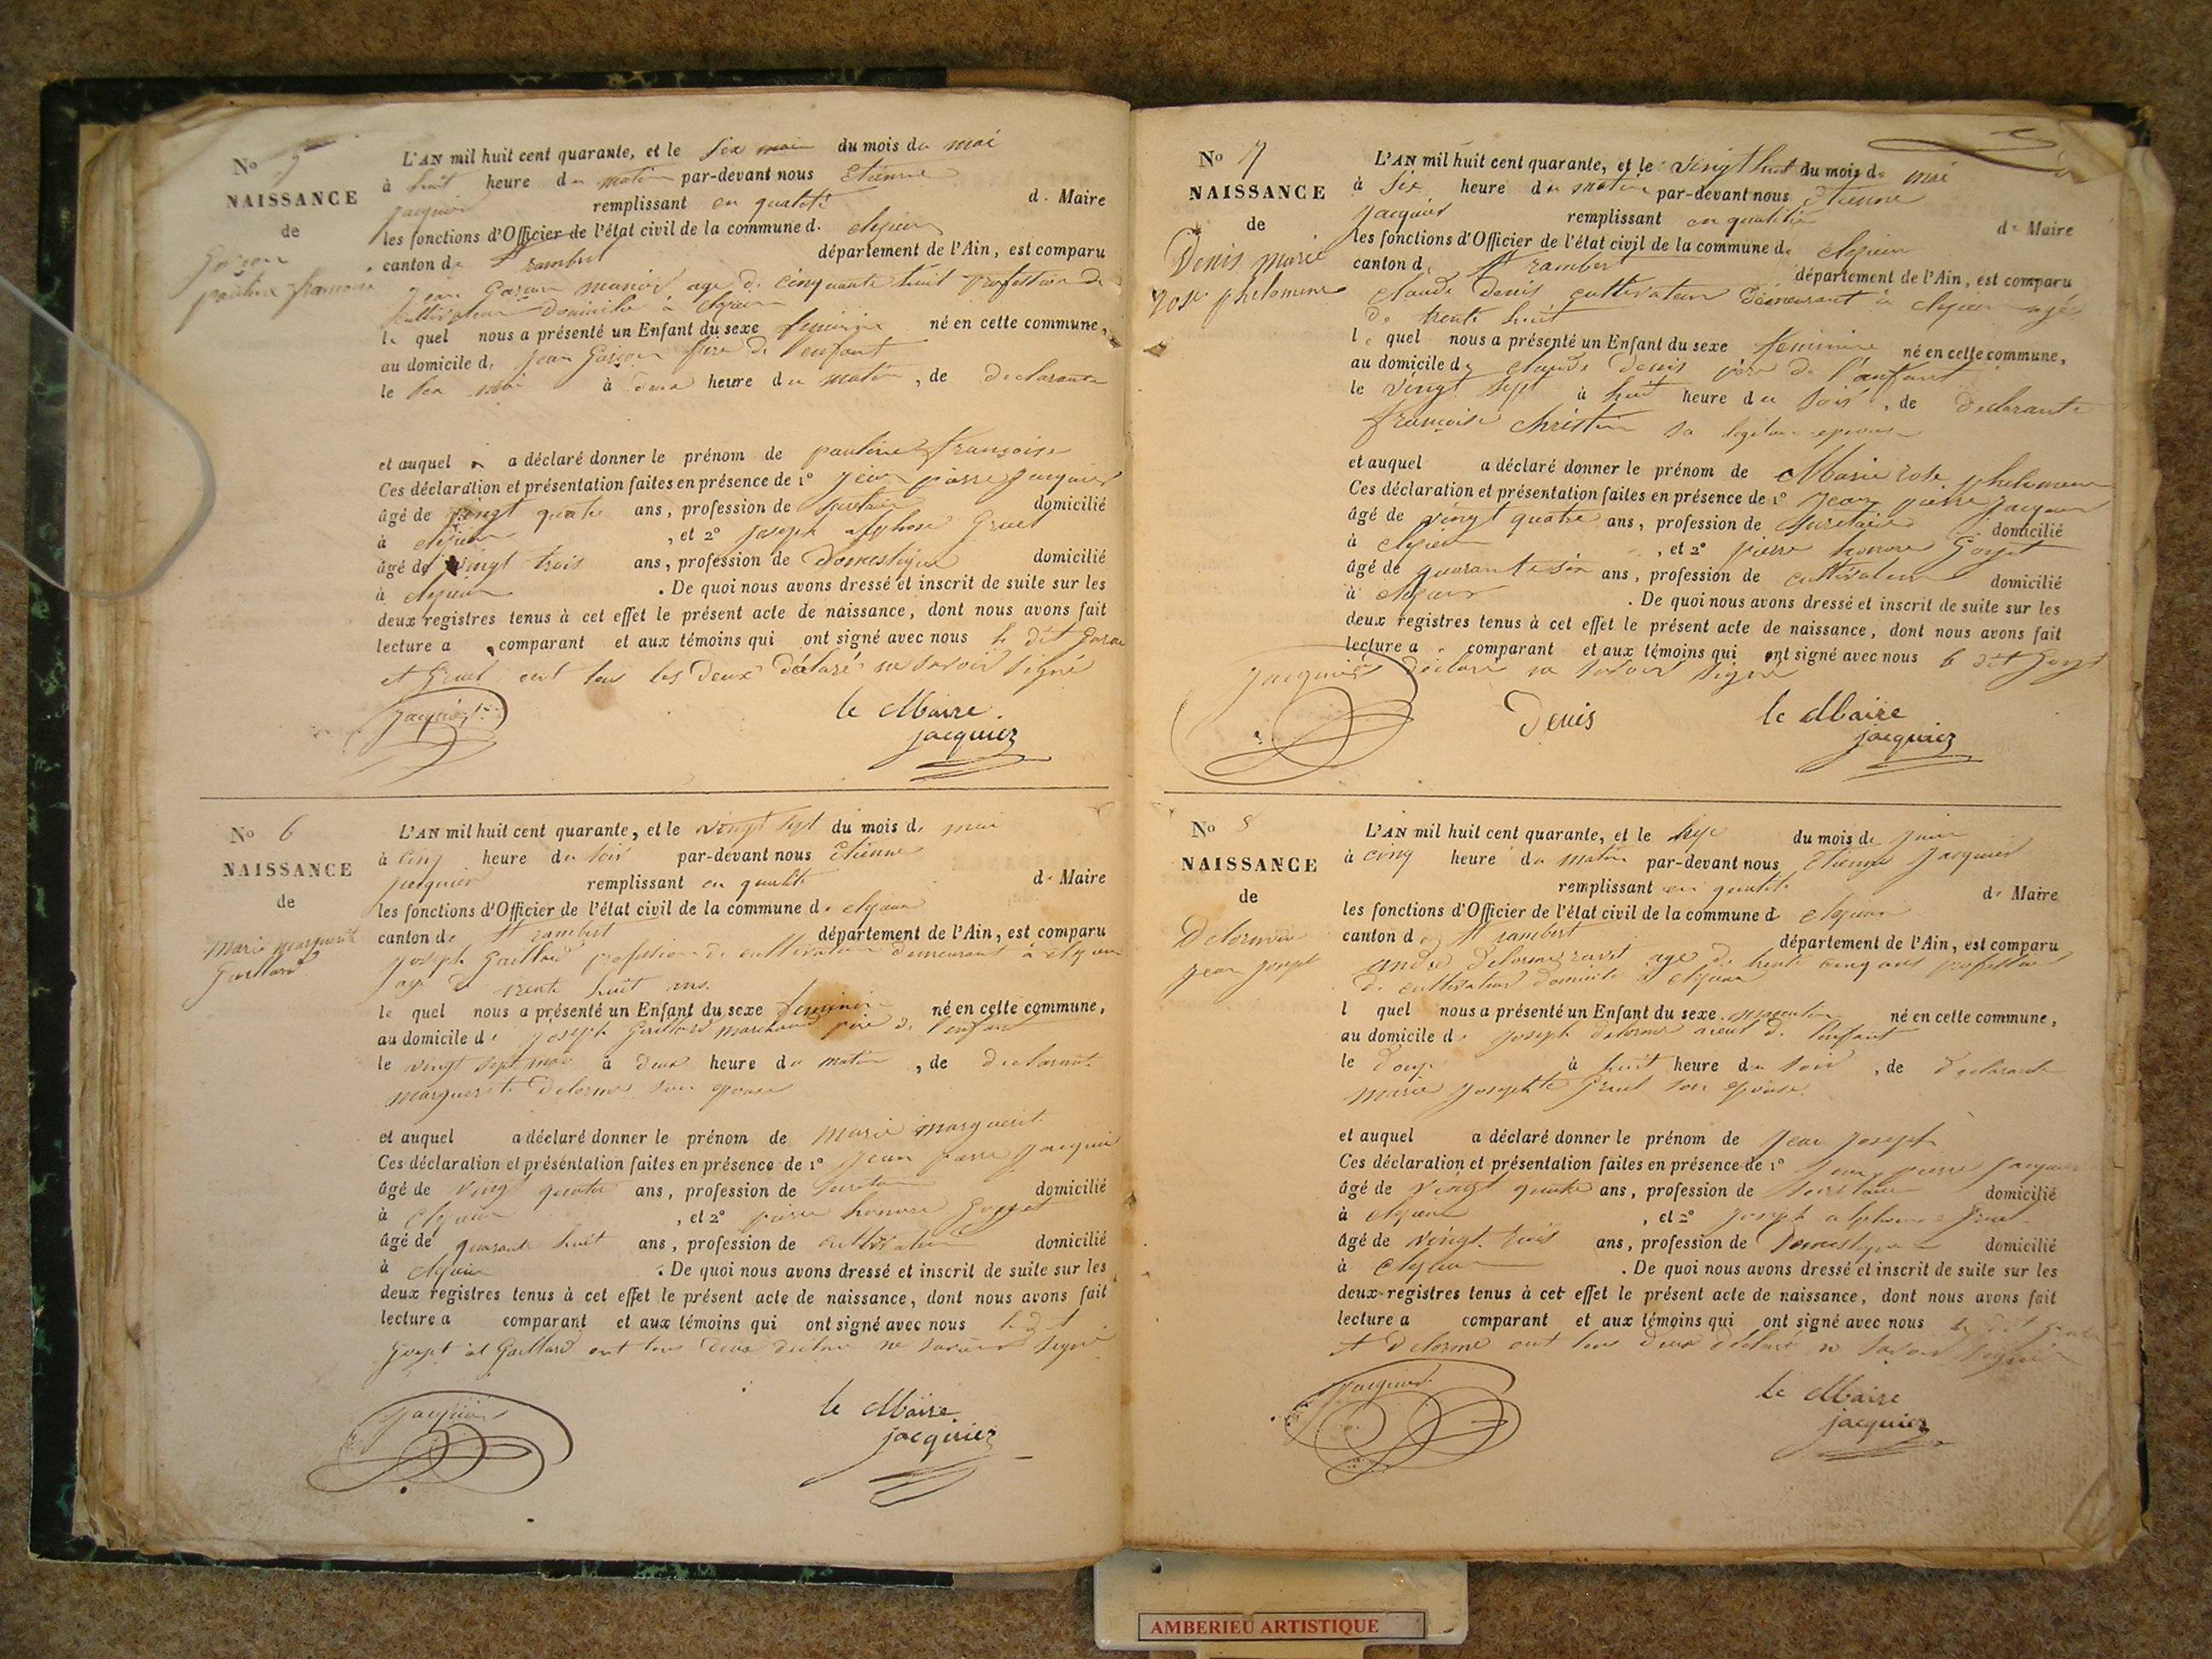 No 5
NAISSANCE
de
pauline françoise
L'AN mil huit cent quarante, et le six du mois de mai
à huit heure du matin par-devant nous Etienne
jacquier remplissant en qualité de Maire
les fonctions d'Officier de l'état civil de la commune d.
canton de St rambert département de l'Ain, est comparu
jean age de cinquante huit profession de
cultivateur domicilié à
le quel nous a présenté un Enfant du sexe feminin né en cette commune,
au domicile de jean père de l'enfant
le six mai à deux heure du matin, de declarante
et auquel a déclaré donner le prénom de pauline françoise
Ces déclaration et présentation faites en présence de 1º jean pierre jacquier
âgé de vingt quatre ans, profession de secretaire domicilié
à , et 2º joseph alphonse Gruet
âgé de vingt trois ans, profession de Domestique domicilié
à . De quoi nous avons dressé et inscrit de suite sur les
deux registres tenus à cet effet le présent acte de naissance, dont nous avons fait
lecture a comparant et aux témoins qui ont signé avec nous le dit
et Gruet ont tous les deux déclaré ne savoir signé
jacquier le Maire
jacquier
No 6
NAISSANCE
de
Marie marguerite
Gaillard
L'AN mil huit cent quarante, et le vingt sept du mois de mai
à cinq heure du soir par-devant nous Etienne
jacquier remplissant en qualité de Maire
les fonctions d'Officier de l'état civil de la commune de
canton de St rambert département de l'Ain, est comparu
joseph Gaillard profession de cultivateur demeurant à
agé de trente huit ans
le quel nous a présenté un Enfant du sexe feminin né en cette commune,
au domicile de joseph Gaillard père de l'enfant
le vingt sept mai à deux heure du matin, de declarant
marguerite Delorme son epouse
et auquel a déclaré donner le prénom de marie marguerite
Ces déclaration et présentation faites en présence de 1º jean pierre jacquier
âgé de vingt quatre ans, profession de secretaire domicilié
à , et 2º pierre honore
âgé de quarante huit ans, profession de cultivateur domicilié
à . De quoi nous avons dressé et inscrit de suite sur les
deux registres tenus à cet effet le présent acte de naissance, dont nous avons fait
lecture a comparant et aux témoins qui ont signé avec nous le dit
et Gaillard ont tous deux déclaré ne savoir signé
jacquier le Maire
jacquier
No 7
NAISSANCE
de
Denis marie
rose phelomene
L'AN mil huit cent quarante, et le vingt huit du mois de mai
à six heure du matin par-devant nous Etienne
jacquier remplissant en qualité de Maire
les fonctions d'Officier de l'état civil de la commune de
canton de St rambert département de l'Ain, est comparu
claude Denis cultivateur Demeurant à agé
de trente huit
le quel nous a présenté un Enfant du sexe feminine né en cette commune,
au domicile de claude Denis père de l'enfant
le vingt sept à huit heure du soir, de declarante
françoise christin sa legitime epouse
et auquel a déclaré donner le prénom de Marie rose phelomene
Ces déclaration et présentation faites en présence de 1º jean pierre jacquier
âgé de vingt quatre ans, profession de secretaire domicilié
à , et 2º pierre honore
âgé de quarante six ans, profession de cultivateur domicilié
à . De quoi nous avons dressé et inscrit de suite sur les
deux registres tenus à cet effet le présent acte de naissance, dont nous avons fait
lecture a comparant et aux témoins qui ont signé avec nous le dit
déclaré ne savoir signé
jacquier Denis le Maire
jacquier
No 8
NAISSANCE
de
Delorme
jean joseph
L'AN mil huit cent quarante, et le du mois de juin
à cinq heure du matin par-devant nous Etienne jacquier
remplissant en qualité de Maire
les fonctions d'Officier de l'état civil de la commune de
canton de St rambert département de l'Ain, est comparu
andré Delorme agé de trente cinq ans profession
de cultivateur domicilié à
l quel nous a présenté un Enfant du sexe masculin né en cette commune,
au domicile de joseph delorme de l'enfant
le à huit heure du soir, de declarante
marie josephte son epouse
et auquel a déclaré donner le prénom de jean joseph
Ces déclaration et présentation faites en présence de 1º jean pierre jacquier
âgé de vingt quatre ans, profession de secretaire domicilié
à , et 2º joseph alphonse Gruet
âgé de vingt trois ans, profession de Domestique domicilié
à . De quoi nous avons dressé et inscrit de suite sur les
deux registres tenus à cet effet le présent acte de naissance, dont nous avons fait
lecture a comparant et aux témoins qui ont signé avec nous le dit
et delorme ont tous deux déclaré ne savoir signé
jacquier le Maire
jacquier
AMBERIEU ARTISTIQUE